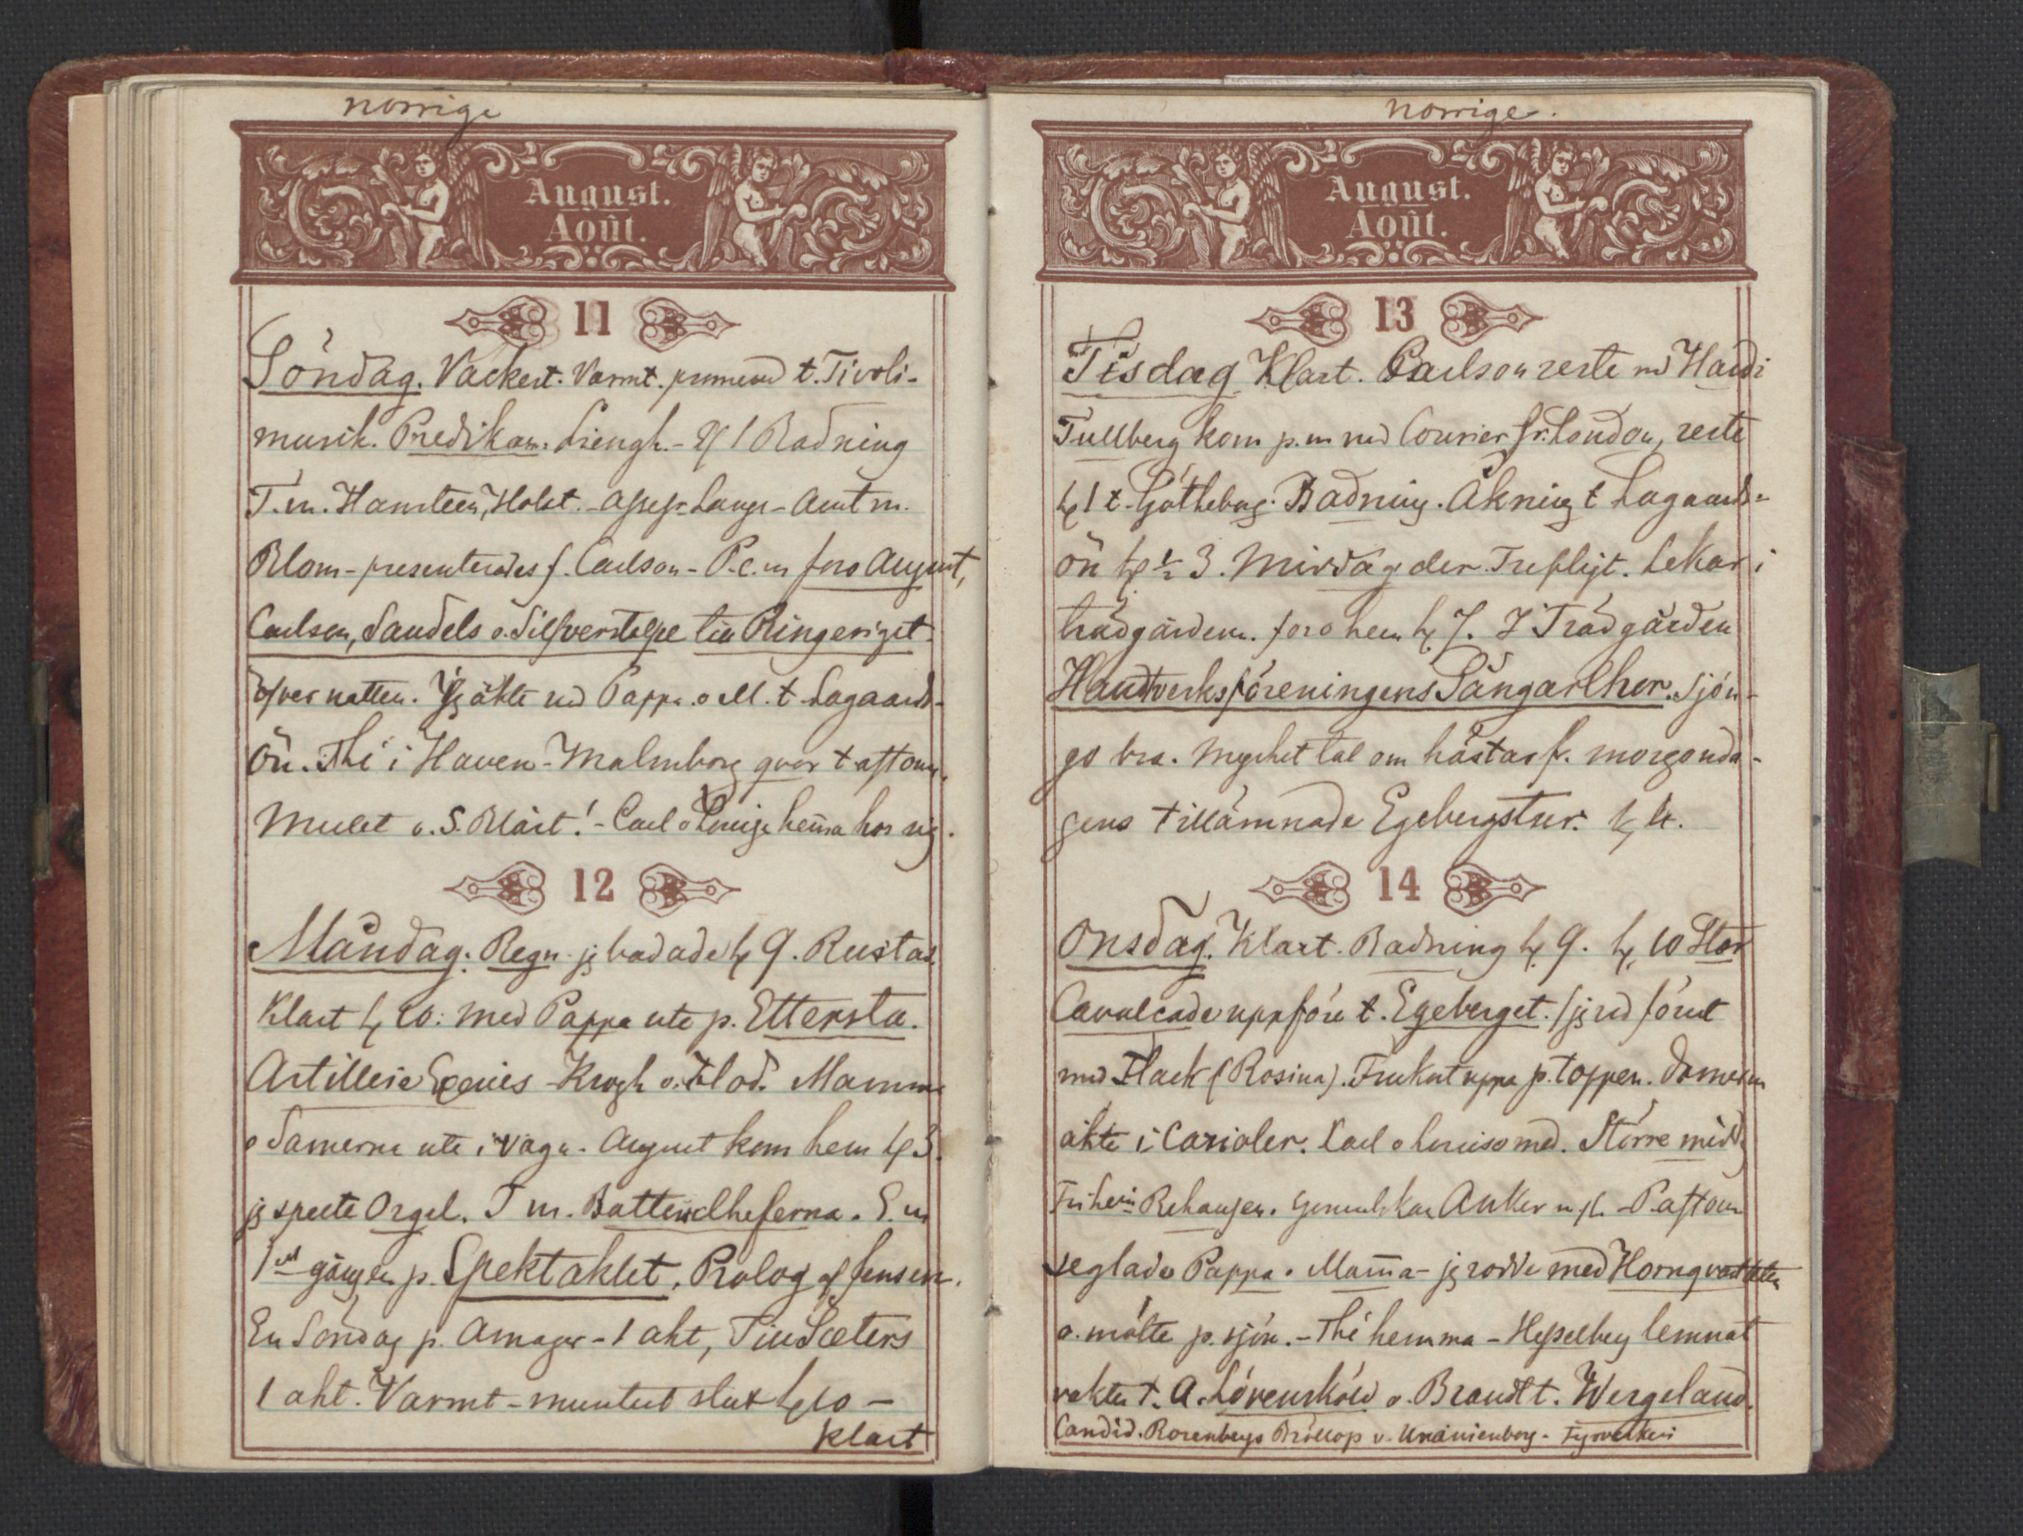 norrige
August.
Août.
11
Söndag. Vackert. Varmt. promenad t. Tivoli-
musik. Predikan. Liengh. - Kl 1 Badning
T. m. Hansteen, Holst. - assess Lange - Amtm.
Blom - presenterades f. Carlson - P. c. m foro August,
Carlson, Sandels o. Silfverstolpe till Ringeriget
öfver natten. Jg åkte md Pappa o M. t. Lagaards-
ön. Thé i Haven - Malmborg qvar t aftonen.
Mulet o. S. Klart! - Carl o Louise hemma hos sig.
12
Måndag. Regn. jg badade kl 9. Rustad.
Klart kl 10: med Pappa ute p. Ettersta.
Artilleri Exercis - Krogh o. Flod. Mamma
o Damerna ute i vagn. August kom hem kl 3.
jg spelte Orgel. T m. Battericheferna. E. m
1sta gången p. Spektaklet. Prolog af Jensen.
En Söndag p. Amager - 1 akt, Til Sæters
1 akt. Varmt - muntert slut kl 10 -
Klart
norrige.
August.
Août.
13
Tisdag Klart. Carlson reste md
Tullberg kom p. m md Courier fr. London, reste
kl 1 t. Götheborg. Badning. Åkning t Lagaards-
ön kl ½ 3. Middag der. Trefligt. Lekar i
trädgården. foro hem kl 7. I Trädgården
Handtverksföreningens Sångarchor. Sjön-
go bra. Mycket tal om hästar f. morgonda-
gens tillämnade Egebergstur. kl
14
Onsdag. Klart. Badning kl 9. kl 10 Stor
Cavalcade uppföre t. Egeberget. (jg red först
med Flack (Rosina). Frukost uppe p. toppen. Damerna
åkte i Carioler. Carl o Louise med. Större midd.
Frih. Rehausen. Generalskan Anker m fl. - P. afton
seglade Pappa o. Mamma - jg rodde med Hornqvartetten
o. mötte p. sjön. - Thé hemma - Hesselberg lemnat
vakten t. A. Lövenskiold o. Brandt t. Wergeland.
Candid. Rosenbergs Bröllop v. Uranienborg - Fyrverkeri